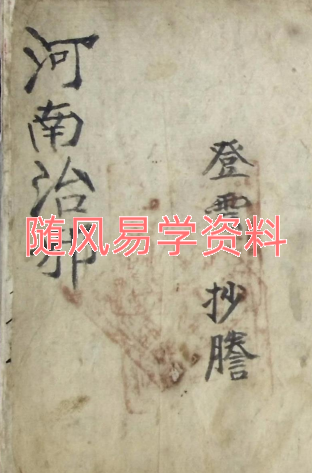 河南治邪
登雲抄謄
随风易学资料